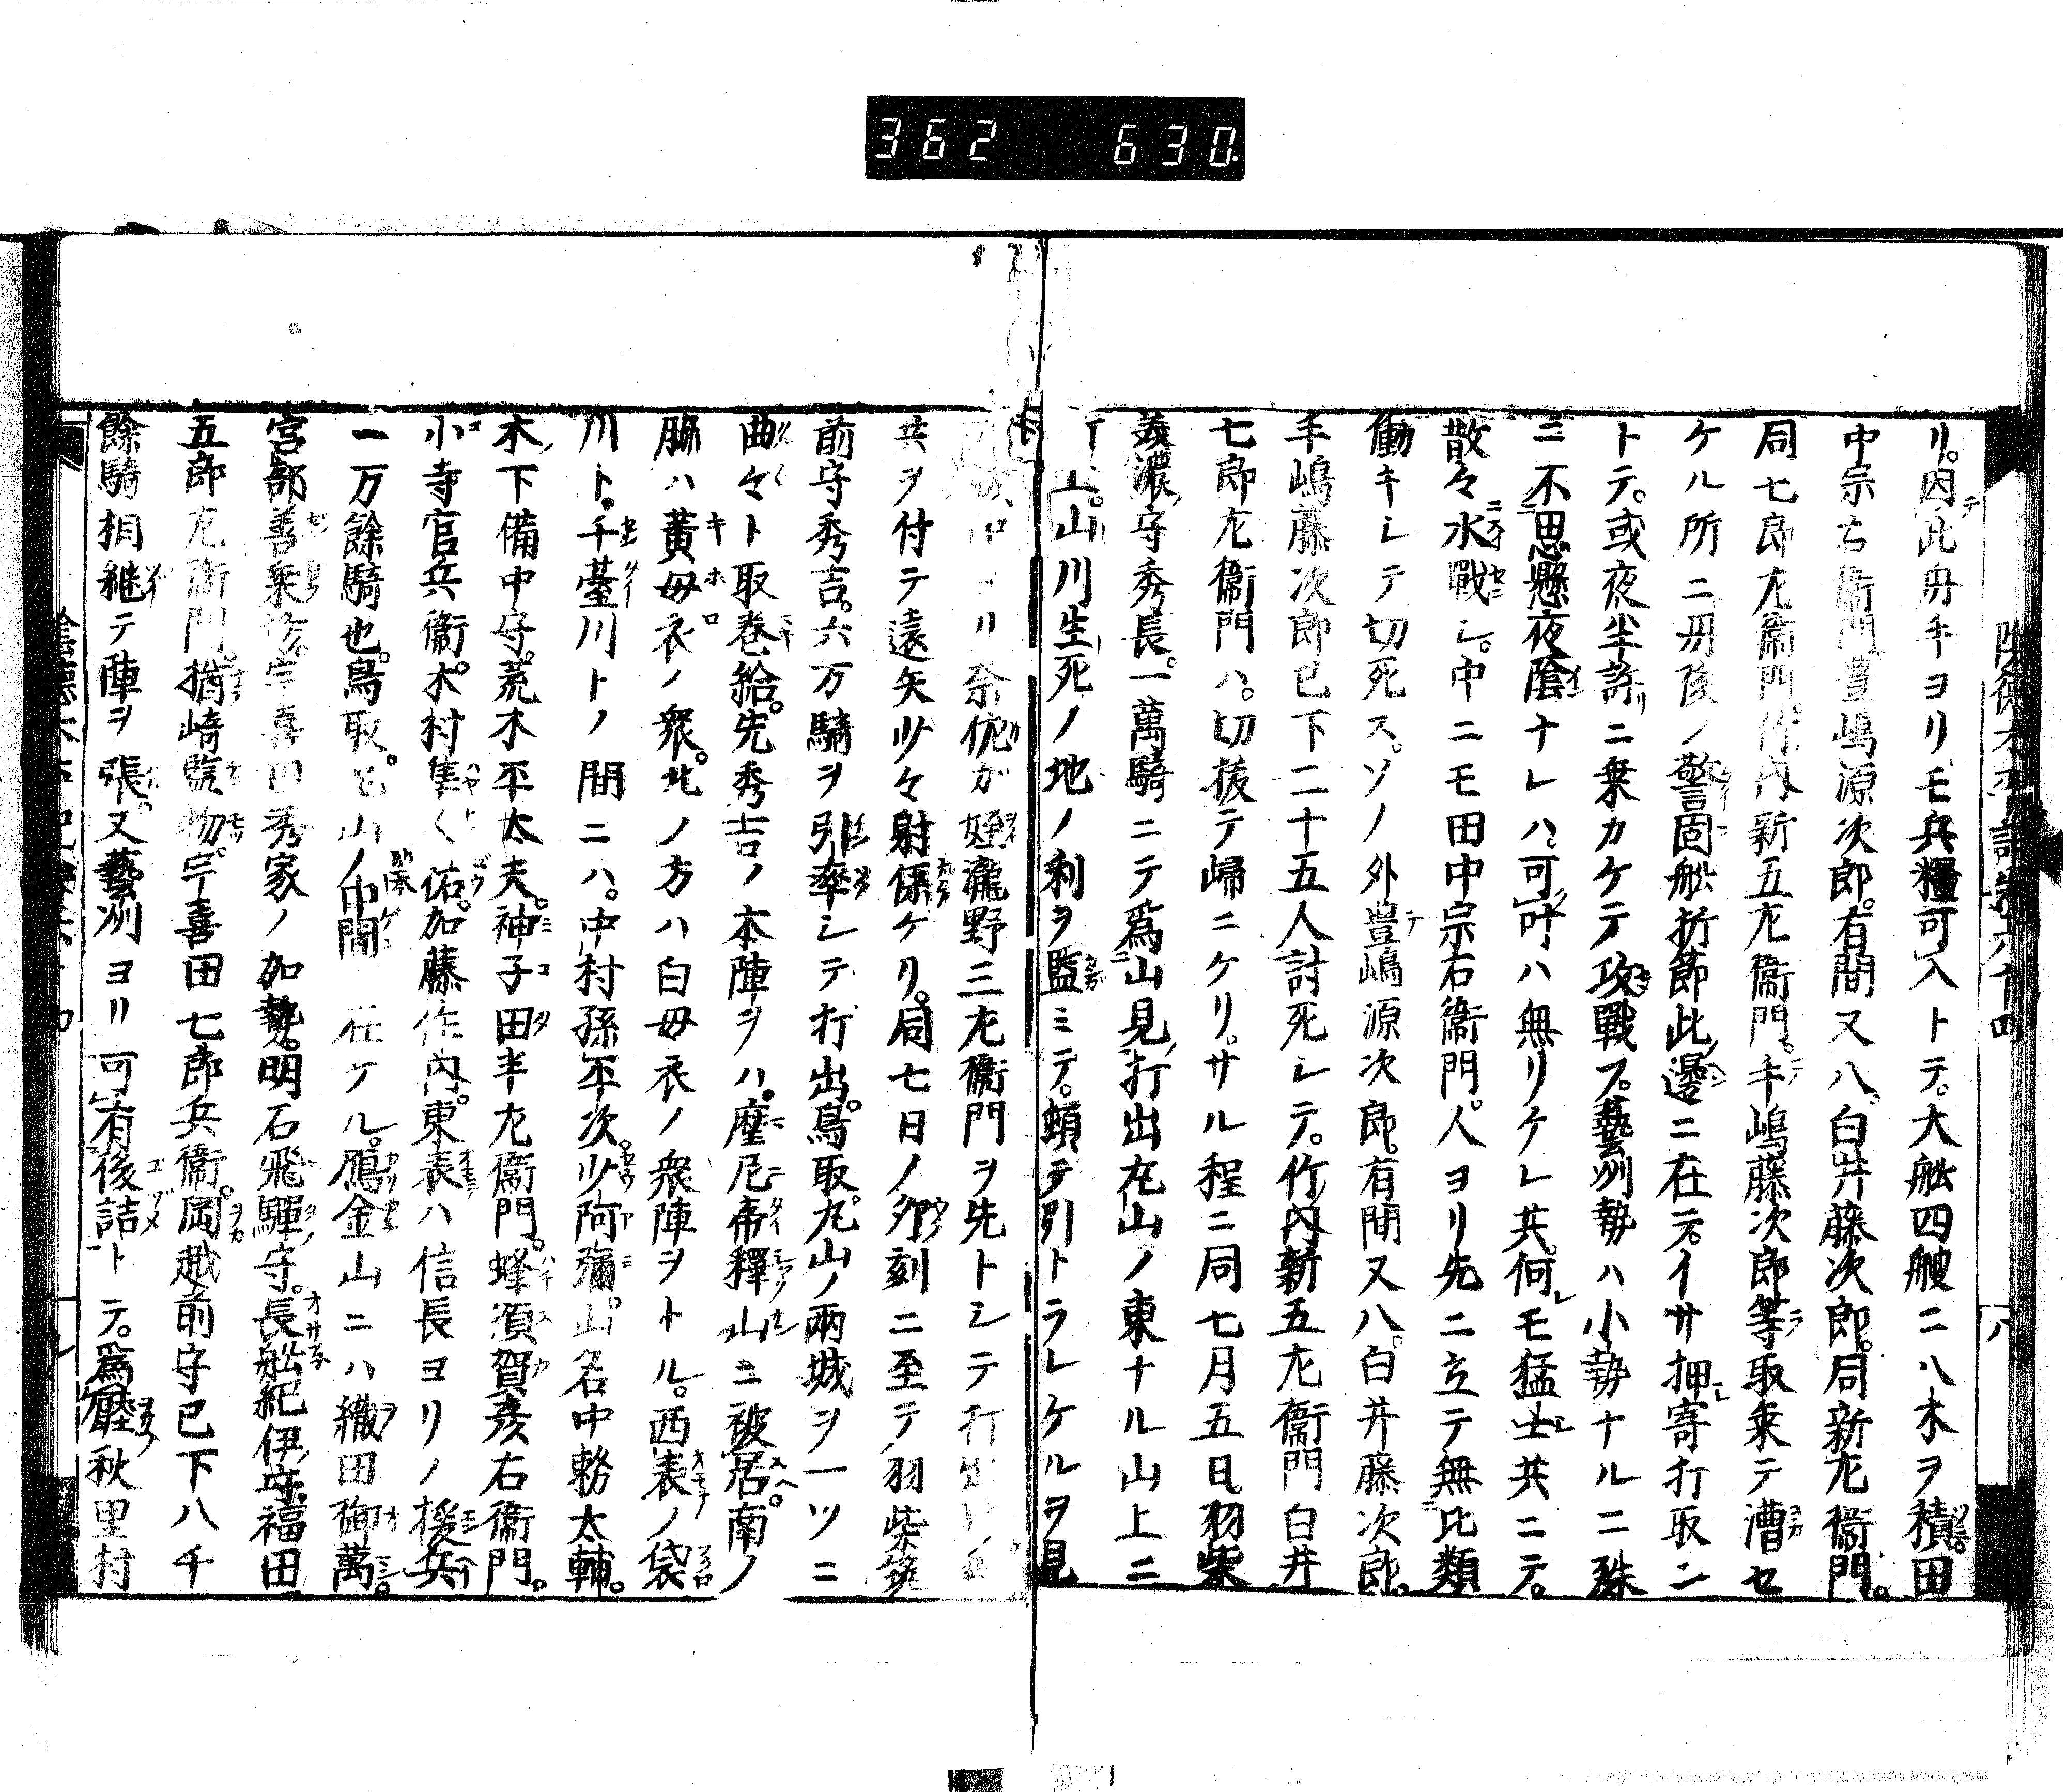 362 630
陰徳太平記巻六十四 八
リ。因此舟手ヨリモ兵糧可入トテ。大舩四艘ニ八木ヲ積。田
中宗右衞門豊嶋源次郎。有間又八。白井藤次郎。同新左衞門。
同七郎左衞門。竹内新五左衞門。手嶋藤次郎等取乗テ漕セ
ケル所ニ丹後ノ警固舩折節此邊ニ在テ。イサ押寄打取ン
トテ。或夜半許ニ乗カケテ攻戰フ。藝州勢ハ小勢ナル二殊
ニ不思懸夜陰ナレハ。可叶ハ無リケレ共。何モ猛士共ニテ。
散々水戰シ。中ニモ田中宗右衞門。人ヨリ先ニ立テ無比類
働キシテ切死ス。ソノ外豊嶋源次郎。有間又八。白井藤次郎。
手嶋藤次郎已下二十五人討死シテ。竹内新五左衞門白井
七郎左衞門ハ。切抜テ帰ニケリ。サル程ニ同七月五日。羽柴
美濃守秀長。一萬騎ニテ爲山見打出丸山ノ東ナル山上ニ
上。山川生死ノ地ノ利ヲ監ミテ。頓テ引トラレケルヲ見
リ奈佐ガ姪瀧野三左衞門ヲ先トシテ打出
兵ヲ付テ遠矢少々射係ケリ。同七日ノ卯刻ニ至テ羽柴筑
前守秀吉。六万騎ヲ引率シテ打出。鳥取丸山ノ兩城ヲ一ツニ
曲々ト取巻給。先秀吉ノ本陣ヲハ。摩尼帝釋山ニ被居。南ノ
脇ハ黄母衣ノ衆。北ノ方ハ白母衣ノ衆陣ヲトル。西表ノ袋
川ト。千臺川トノ間ニハ。中村孫平次。少阿彌。山名中務太輔。
木下備中守。荒木平太夫。神子田半左衞門。蜂須賀彦右衞門。
小寺官兵衞。木村隼人佑。加藤作内。東表ハ信長ヨリノ援兵
一万餘騎也。鳥取。丸山ノ中間在ケル。鴈金山ニハ織田御萬。
宮部善祥坊。宇喜田秀家ノ加勢。明石飛騨守。長舩紀伊守。福田
五郎左衞門。楢崎監物。宇喜田七郎兵衞。岡越前守已下八千
餘騎相継テ陣ヲ張。又藝州ヨリ可有後詰トテ。爲壓秋里村